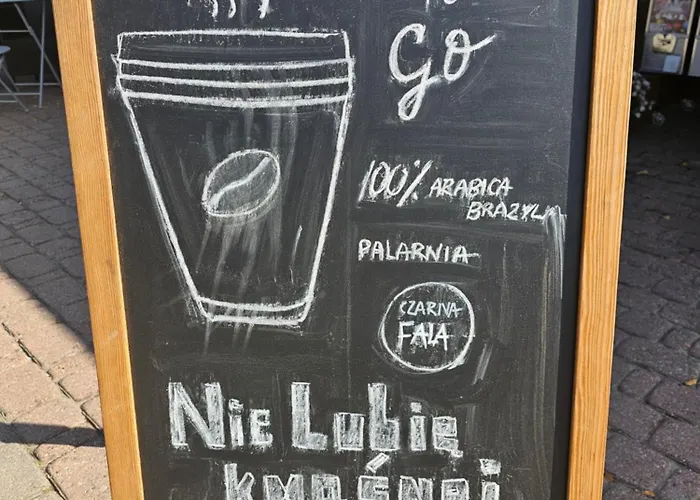 Go
100% ARABICA
BRAZYLIA
PALARNIA
CZARNA
FALA
Nie Lubię